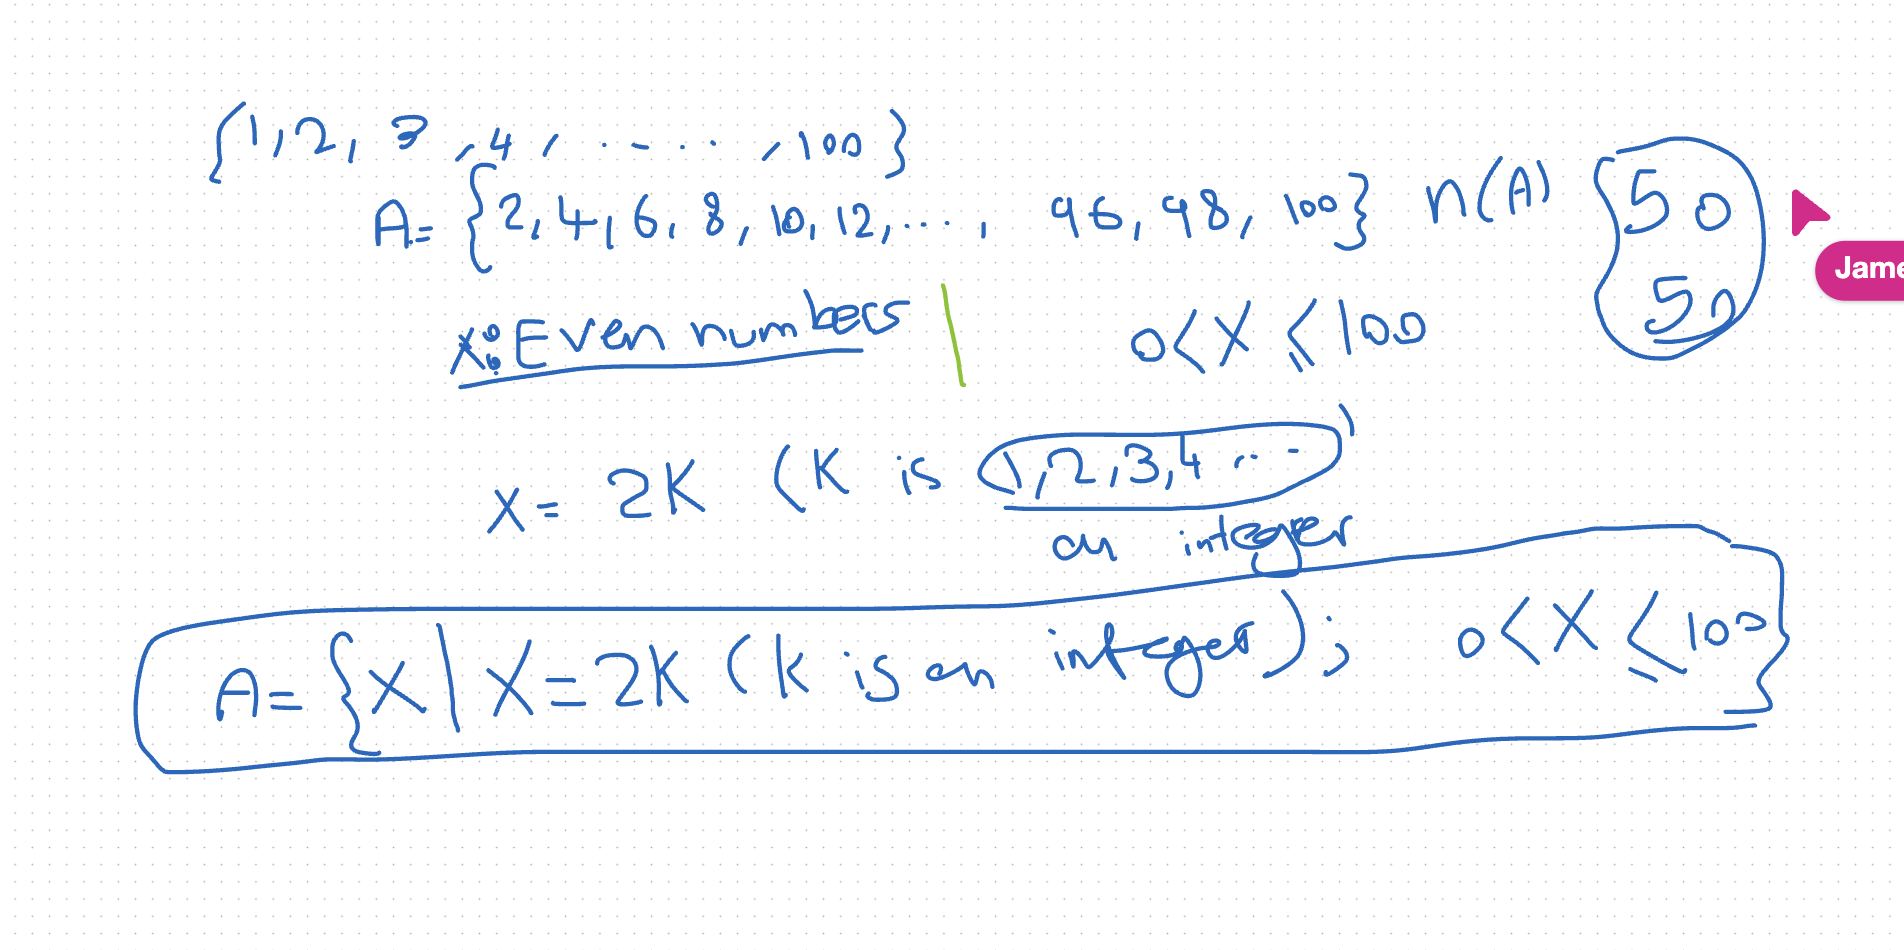 {1, 2, 3, 4, ....., 100}
A= {2, 4, 6, 8, 10, 12, ..., 96, 98, 100} n(A) 50
50
James
x: Even numbers | 0<x≤100
x= 2K (K is 1, 2, 3, 4 ...)
an integer
A= {x| x=2K (k is an integer); 0<x≤100}